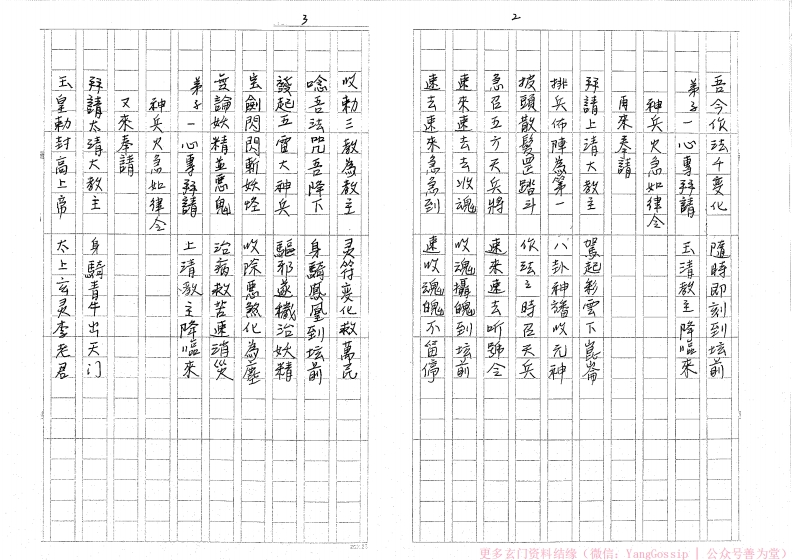 2
吾今作法千變化　隨時即刻到坛前
弟子一心專拜請　玉清教主降臨來
神兵火急如律令
再來奉請
拜請上清大教主　駕起彩雲下崑崙
排兵佈陣為第一　八卦神譜收元神
披頭散髮罡踏斗　作法之時召天兵
急召五方天兵將　速來速去听號令
速來速去去收魂　收魂攝魄到坛前
速去速來急急到　速收魂魄不留停
3
收勅三教為教主　灵符变化救萬民
唸吾法咒吾降下　身騎鳳凰到坛前
發起五雷大神兵　驅邪遂穢治妖精
宝劍閃閃斬妖怪　收除惡煞化為塵
無論妖精並惡鬼　治病救苦速消災
弟子一心專拜請　上清教主降臨來
神兵火急如律令
又來奉請
拜請太清大教主　身騎青牛出天门
玉皇勅封高上帝　太上玄灵李老君
更多玄门资料结缘（微信：YangGossip | 公众号善为堂）